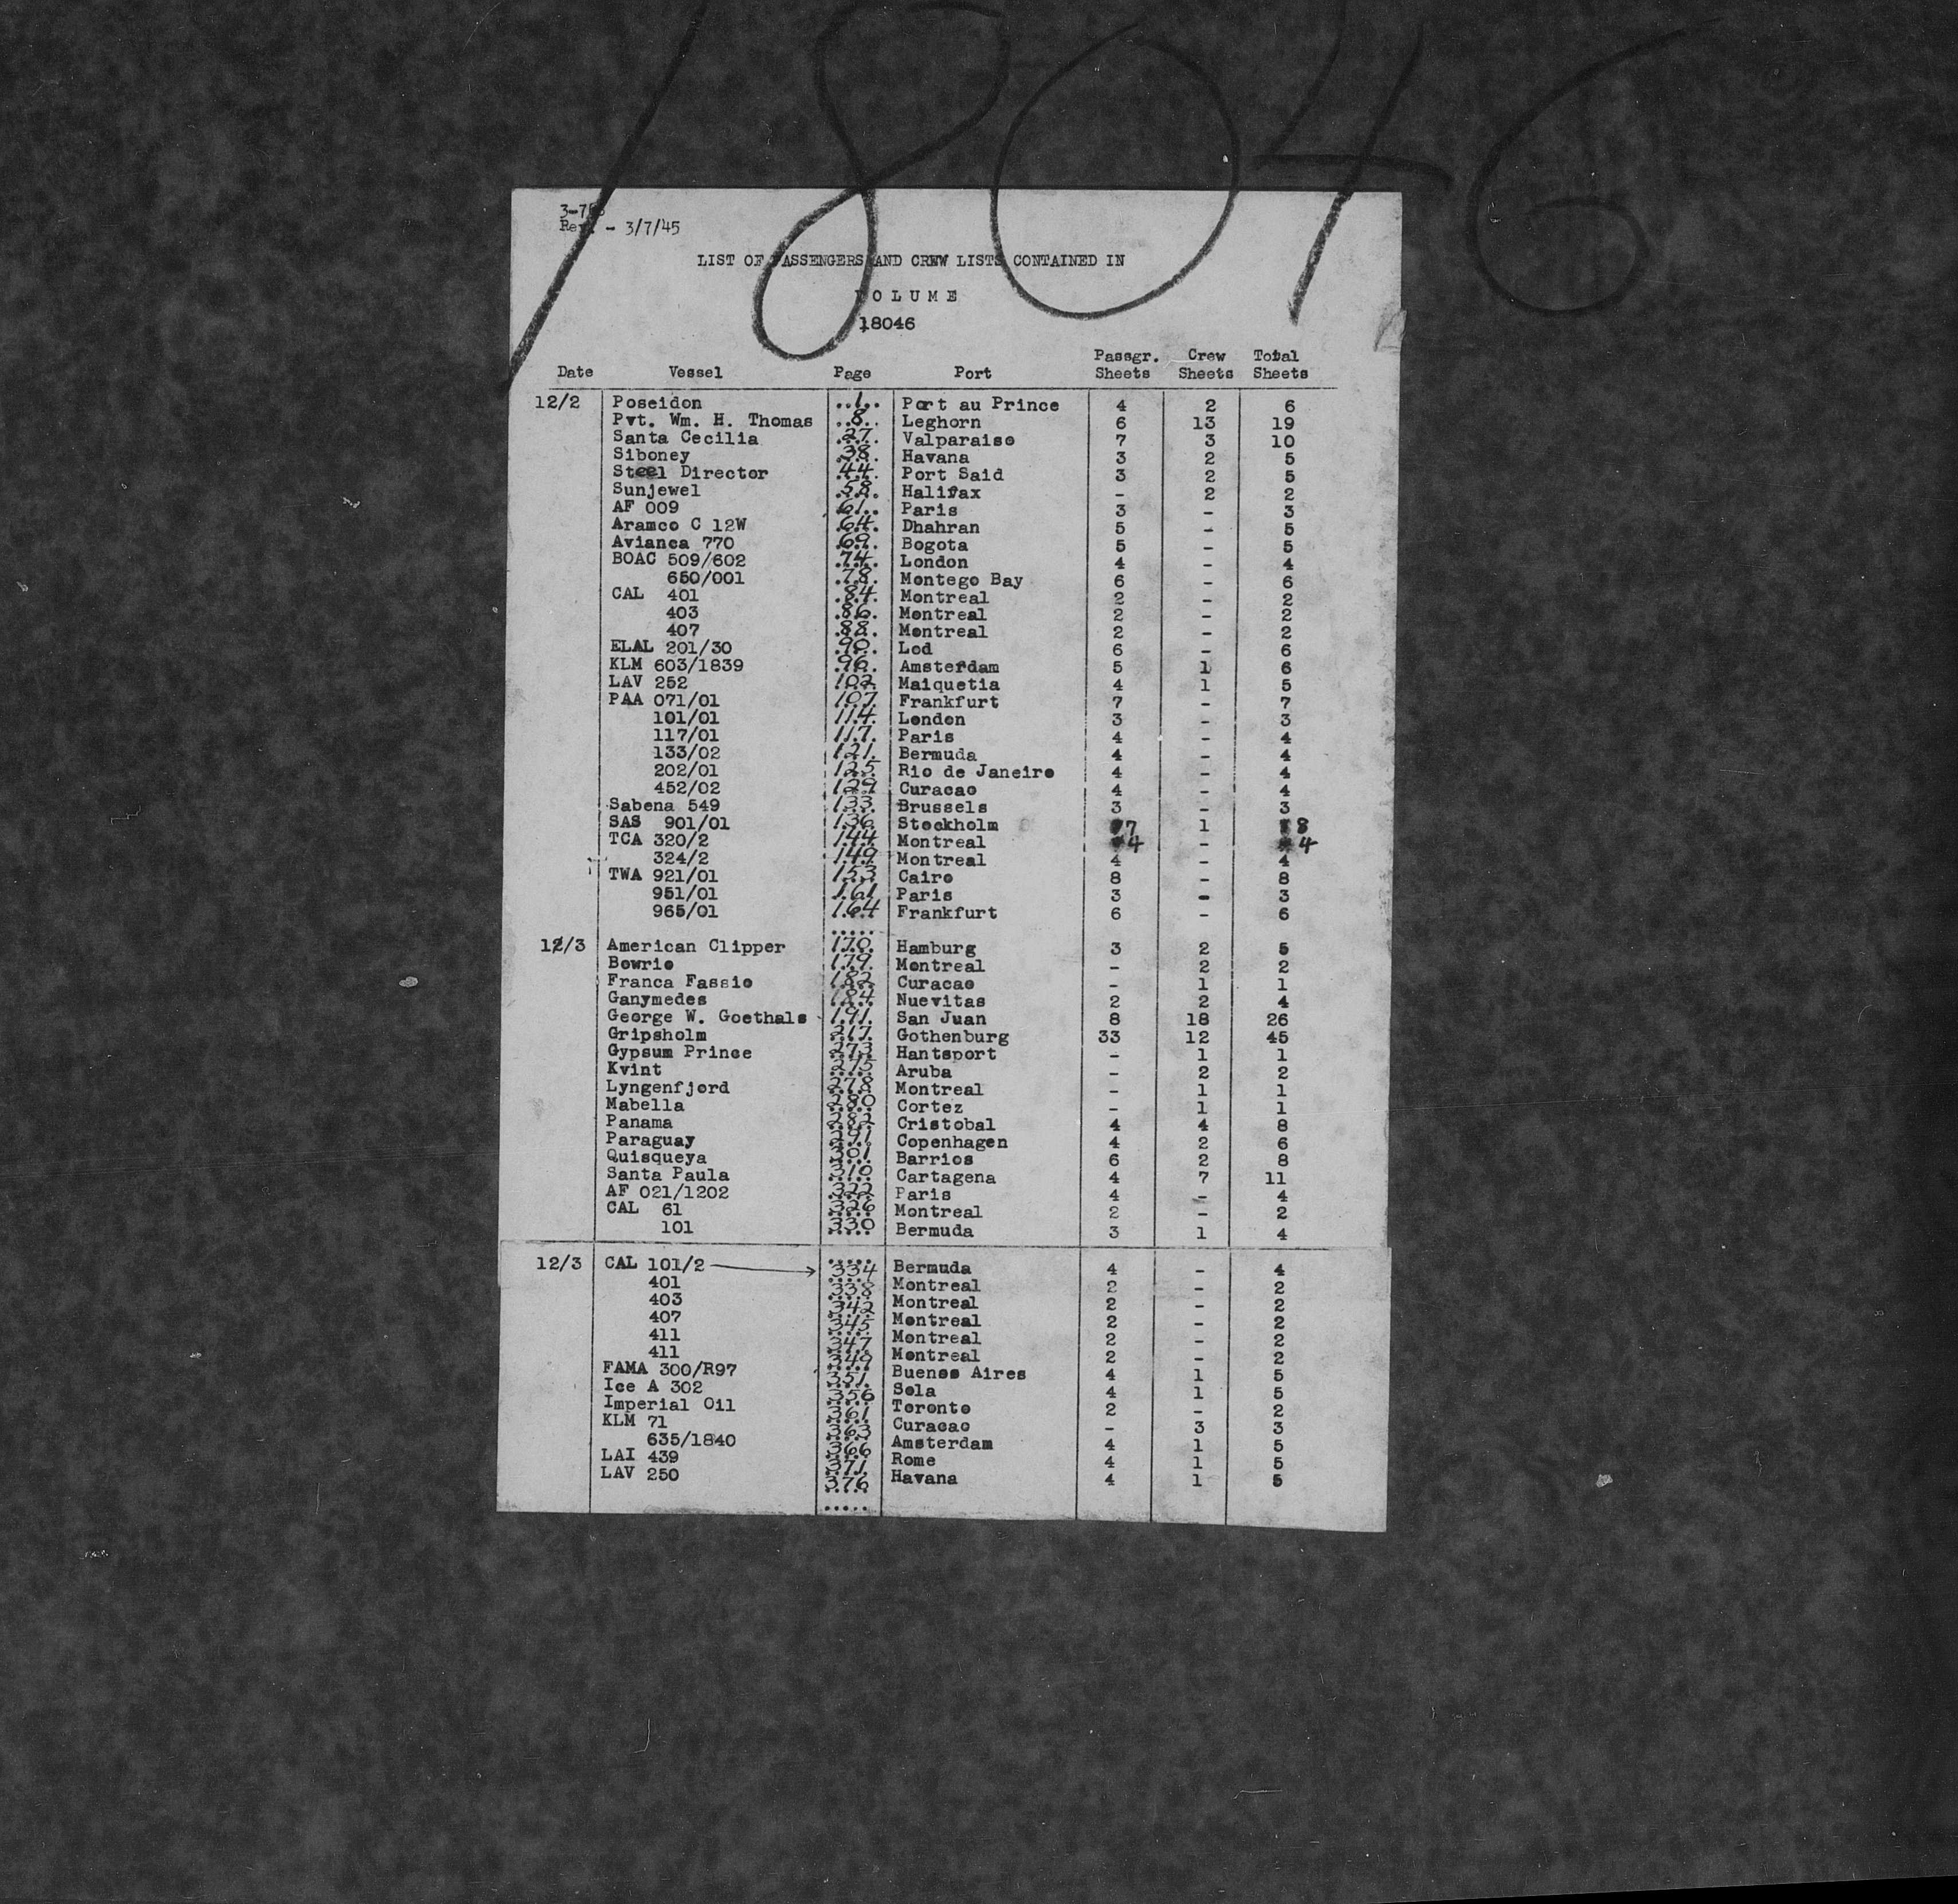 18046
3-7
Rev. - 3/7/45
LIST OF PASSENGERS AND CREW LISTS CONTAINED IN
VOLUME
18046
Date Vessel Page Port Passgr. Sheets Crew Sheets Total Sheets
12/2 Poseidon 1 Port au Prince 4 2 6
Pvt. Wm. H. Thomas 8 Leghorn 6 13 19
Santa Cecilia 27 Valparaiso 7 3 10
Siboney 38 Havana 3 2 5
Steel Director 44 Port Said 3 2 5
Sunjewel 58 Halifax - 2 2
AF 009 61 Paris 3 - 3
Aramco C 12W 64 Dhahran 5 - 5
Avianca 770 69 Bogota 5 - 5
BOAC 509/602 74 London 4 - 4
650/001 78 Montego Bay 6 - 6
CAL 401 84 Montreal 2 - 2
403 86 Montreal 2 - 2
407 88 Montreal 2 - 2
ELAL 201/30 90 Lod 6 - 6
KLM 603/1839 96 Amsterdam 5 1 6
LAV 252 102 Maiquetia 4 1 5
PAA 071/01 107 Frankfurt 7 - 7
101/01 114 London 3 - 3
117/01 117 Paris 4 - 4
133/02 121 Bermuda 4 - 4
202/01 125 Rio de Janeiro 4 - 4
452/02 129 Curacao 4 - 4
Sabena 549 133 Brussels 3 - 3
SAS 901/01 136 Stockholm 7 1 8
TCA 320/2 144 Montreal 4 - 4
324/2 149 Montreal 4 - 4
TWA 921/01 153 Cairo 8 - 8
951/01 161 Paris 3 - 3
965/01 164 Frankfurt 6 - 6
12/3 American Clipper 170 Hamburg 3 2 5
Bowrio 179 Montreal - 2 2
Franca Fassio 182 Curacao - 1 1
Ganymedes 184 Nuevitas 2 2 4
George W. Goethals 191 San Juan 8 18 26
Gripsholm 217 Gothenburg 33 12 45
Gypsum Prince 273 Hantsport - 1 1
Kvint 275 Aruba - 2 2
Lyngenfjord 278 Montreal - 1 1
Mabella 280 Cortez - 1 1
Panama 282 Cristobal 4 4 8
Paraguay 291 Copenhagen 4 2 6
Quisqueya 301 Barrios 6 2 8
Santa Paula 310 Cartagena 4 7 11
AF 021/1202 322 Paris 4 - 4
CAL 61 326 Montreal 2 - 2
101 330 Bermuda 3 1 4
12/3 CAL 101/2 334 Bermuda 4 - 4
401 338 Montreal 2 - 2
403 342 Montreal 2 - 2
407 345 Montreal 2 - 2
411 347 Montreal 2 - 2
411 349 Montreal 2 - 2
FAMA 300/R97 351 Buenos Aires 4 1 5
Ice A 302 356 Sola 4 1 5
Imperial Oil 361 Toronto 2 - 2
KLM 71 363 Curacao - 3 3
635/1840 366 Amsterdam 4 1 5
LAI 439 371 Rome 4 1 5
LAV 250 376 Havana 4 1 5